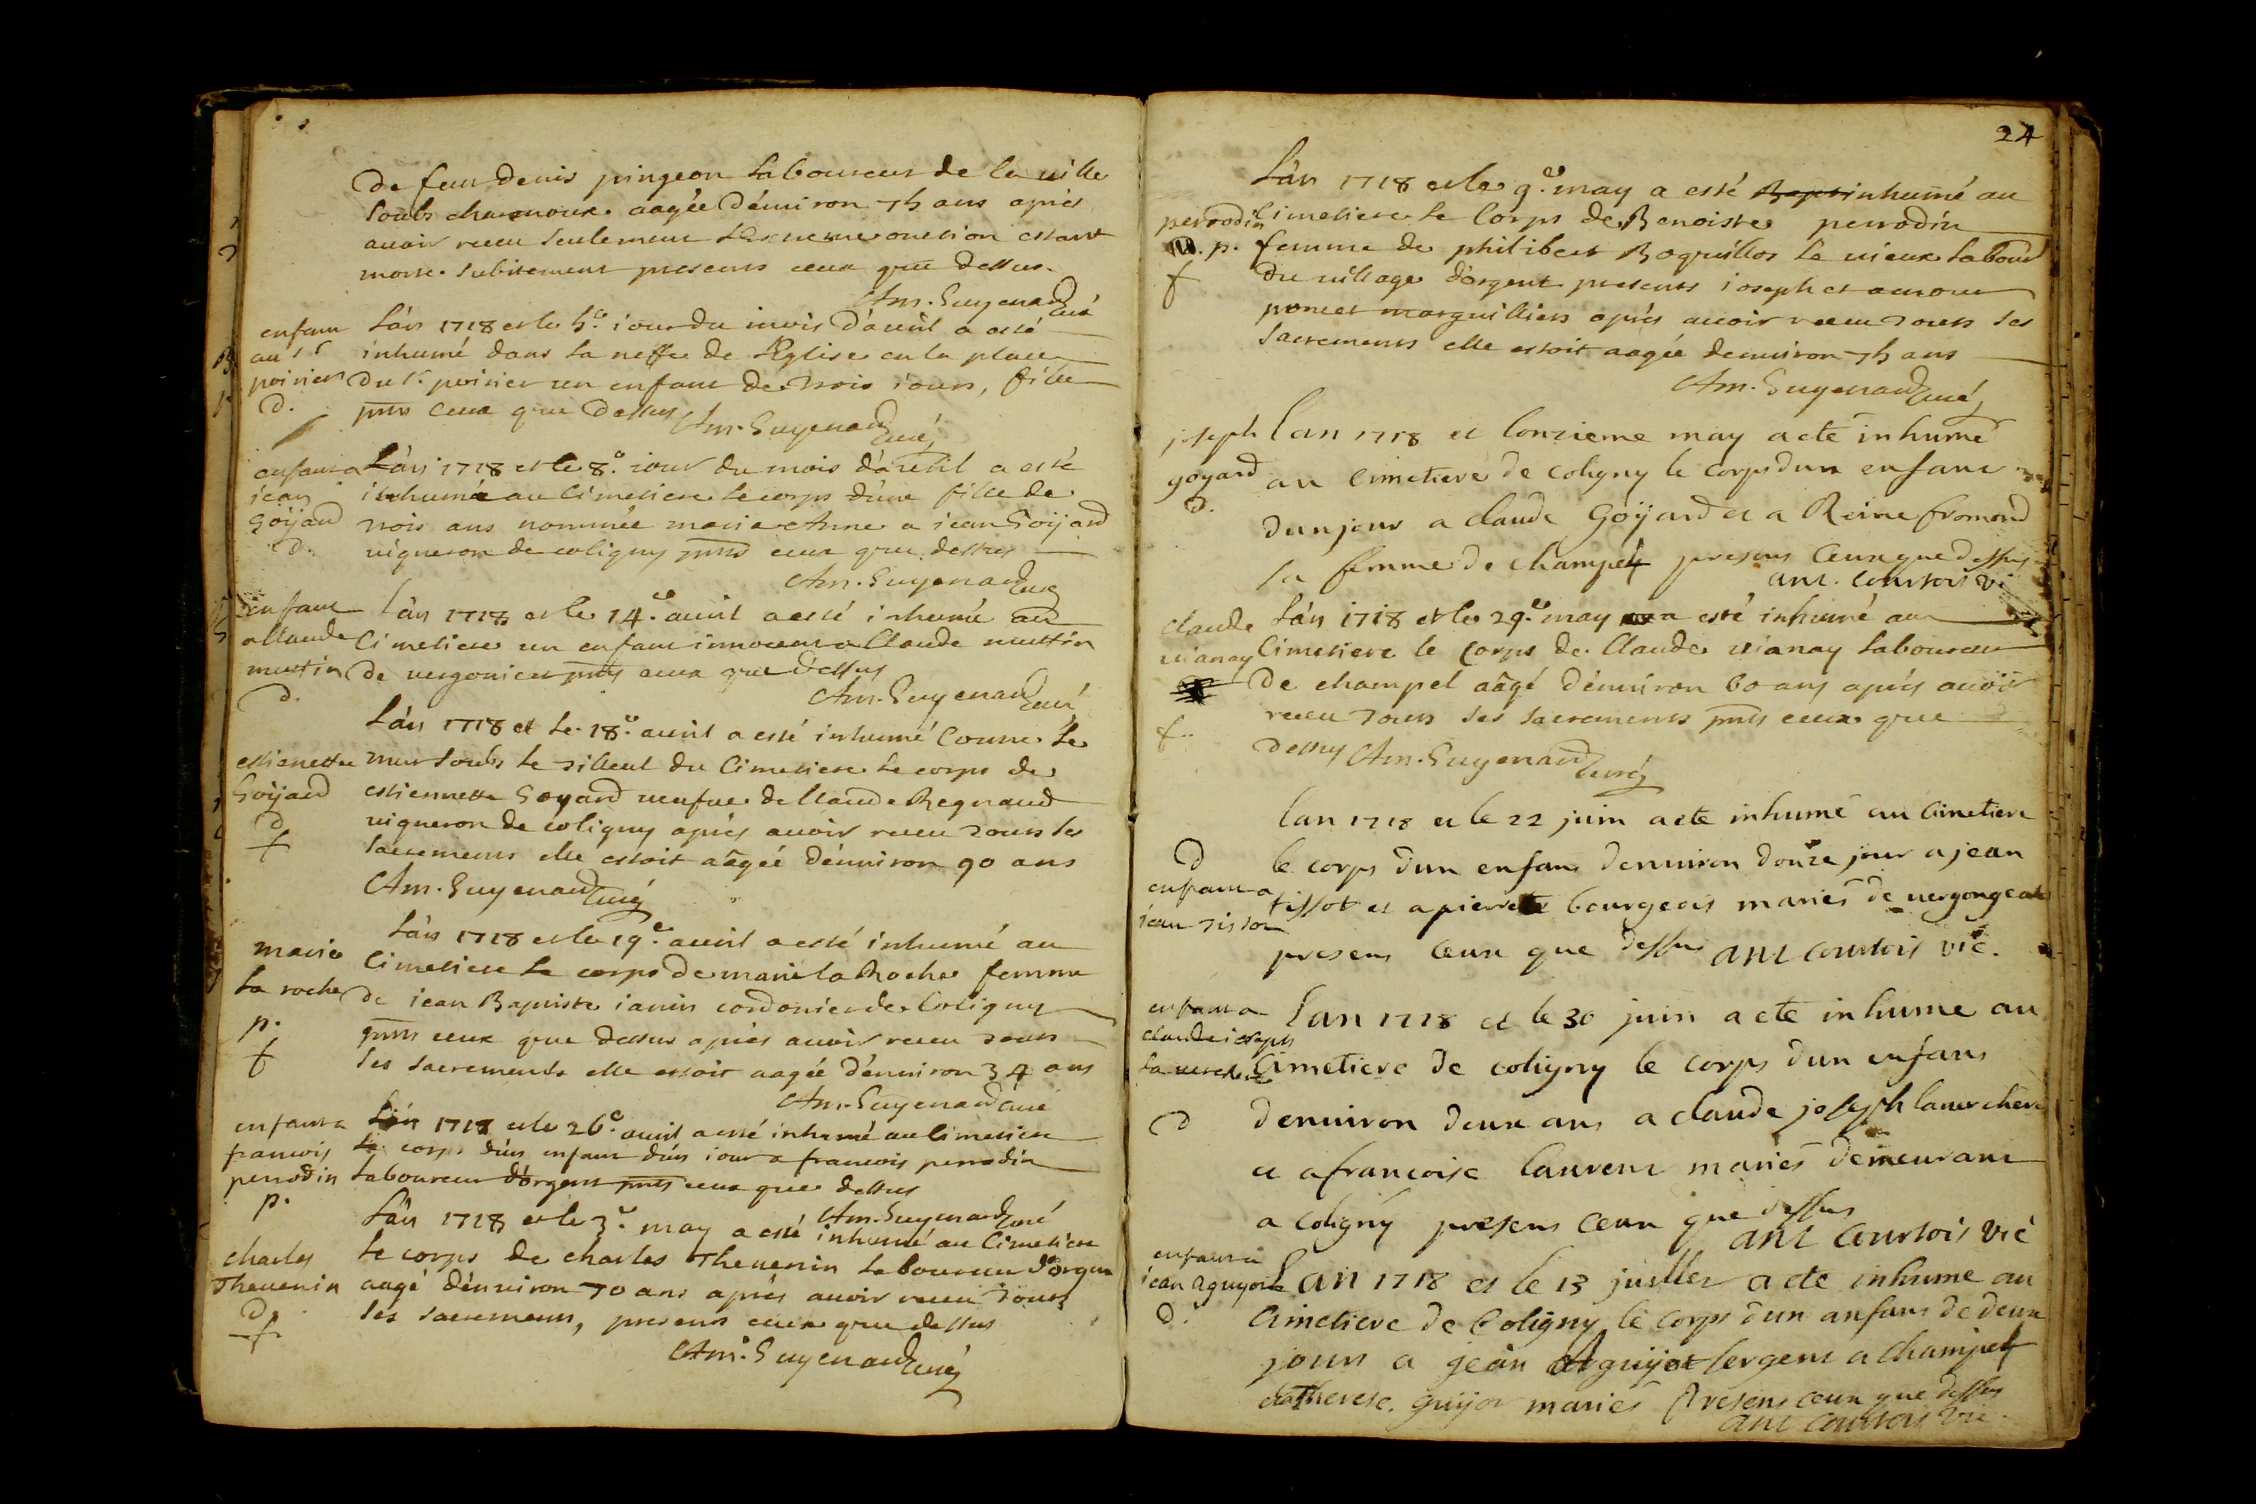 de feu denis pingeon laboureur de la ville
soubs charmoux aagée d'énuiron 75 ans aprés
auoir receu seulement L'Extreme onction estant
morte subitement presents ceux que dessus.
Am. Guyenard curé
enfant
au sr
poirier
d.
L'án 1718 et le 5e iour du mois d'áuril a esté
inhumé dans la neffe de L'Eglise en la place
du sr poirier un enfant de trois iours, fille
pnts ceux que dessus Am. Guyenard curé
enfant a
iean
Goÿard
d.
L'án 1718 et le 8e. iour du mois d'áuril a esté
inhumée au Cimetiere le corps d'une fille de
trois ans nommée marie Anne a iean Goÿard
uigneron de coligny pnts ceux que dessus
Am. Guyenard curé
enfant
a Claude
muttin
d.
L'án 1718 et le 14e. auril a esté inhumé au
Cimetiere un enfant innocent a Claude muttin
de uergoniat pnts ceux que dessus
Am. Guyenard curé
estienette
Goÿard
d
f
L'án 1718 et le 18e. auril a esté inhumé Contre le
mur soubs le tilleul du Cimetiere le corps de
estiennette Goyard ueufue de Claude Regnaud
uigneron de coligny aprés auoir receu tous les
sacrements elle estoit aâgée d'énuiron 90 ans
Am. Guyenard curé
marie
la roche
p.
f
L'án 1718 et le 19e. auril a esté inhumé au
Cimetiere le corps de marie la Roche femme
de iean Baptiste ianin cordonier de Coligny
pnts ceux que dessus aprés auoir receu tous
les sacrements elle estoit aagée d'énuiron 34 ans
Am. Guyenard curé
enfant a
francois
perrodin
p.
L'án 1718 et le 26e. auril a esté inhumé au Cimetiere
le corps d'un enfant d'un iour a francois perrodin
laboureur d'orgent pnts ceux que dessus
Am. Guyenard curé
charles
Theuenin
d.
f
L'án 1718 et le 3e. may a esté inhumé au Cimetiere
le corps de charles Theuenin laboureur d'orgent
aagé d'énuiron 70 ans aprés auoir receu tous
les sacrements, presents ceux que dessus
Am. Guyenard curé
24
perrodin
p.
f
L'án 1718 et le 9e. may a esté Bapt inhumé au
Cimetiere le Corps de Benoiste perrodin
femme de philibert Boquillos le uieux labour
du uillage d'orgent presents ioseph et
poncet marguilliers aprés auoir receu tous les
sacrements elle estoit aagée denuiron 75 ans
Am. Guyenard curé
joseph
goyard
d.
Lan 1718 et Lonzieme may a eté inhumé
au Cimetiere de coligny le corps dun enfant
dun jour a claude Goÿard et a Reine fromond
sa femme de champel presens Ceux que dessus
ant. courtois vi
claude
uianay
f.
L'án 1718 et le 29e. may a esté inhumé au
Cimetiere le Corps de Claude uianay laboureur
de champel aâgé d'énuiron 60 ans aprés auoir
receu tous les sacrements pnts ceux que
dessus Am. Guyenard curé
d
enfant a
iean tissot
lan 1718 et le 22 juin a eté inhumé au Cimetiere
le corps dun enfant denuiron douze jour a jean
tissot et a pierrete bourgeois mariés de uergongeat
presens ceux que dessus ant courtois vic.
enfant a
claude ioseph
lauerchere
d
lan 1718 et le 30 juin a eté inhumé au
Cimetiere de coligny le corps dun enfans
denuiron deux ans a claude joseph lauerchere
et a francoise laurent mariés demeurant
a coligny presens ceux que dessus
ant Courtois vic
enfant a
iean aguyot
d.
Lan 1718 et le 13 juillet a eté inhumé au
Cimetiere de Coligny le corps dun anfans de deux
jours a gean Aguijot sergent a champel
et a Therese guijot mariés presens ceux que dessus
ant courtois vic.